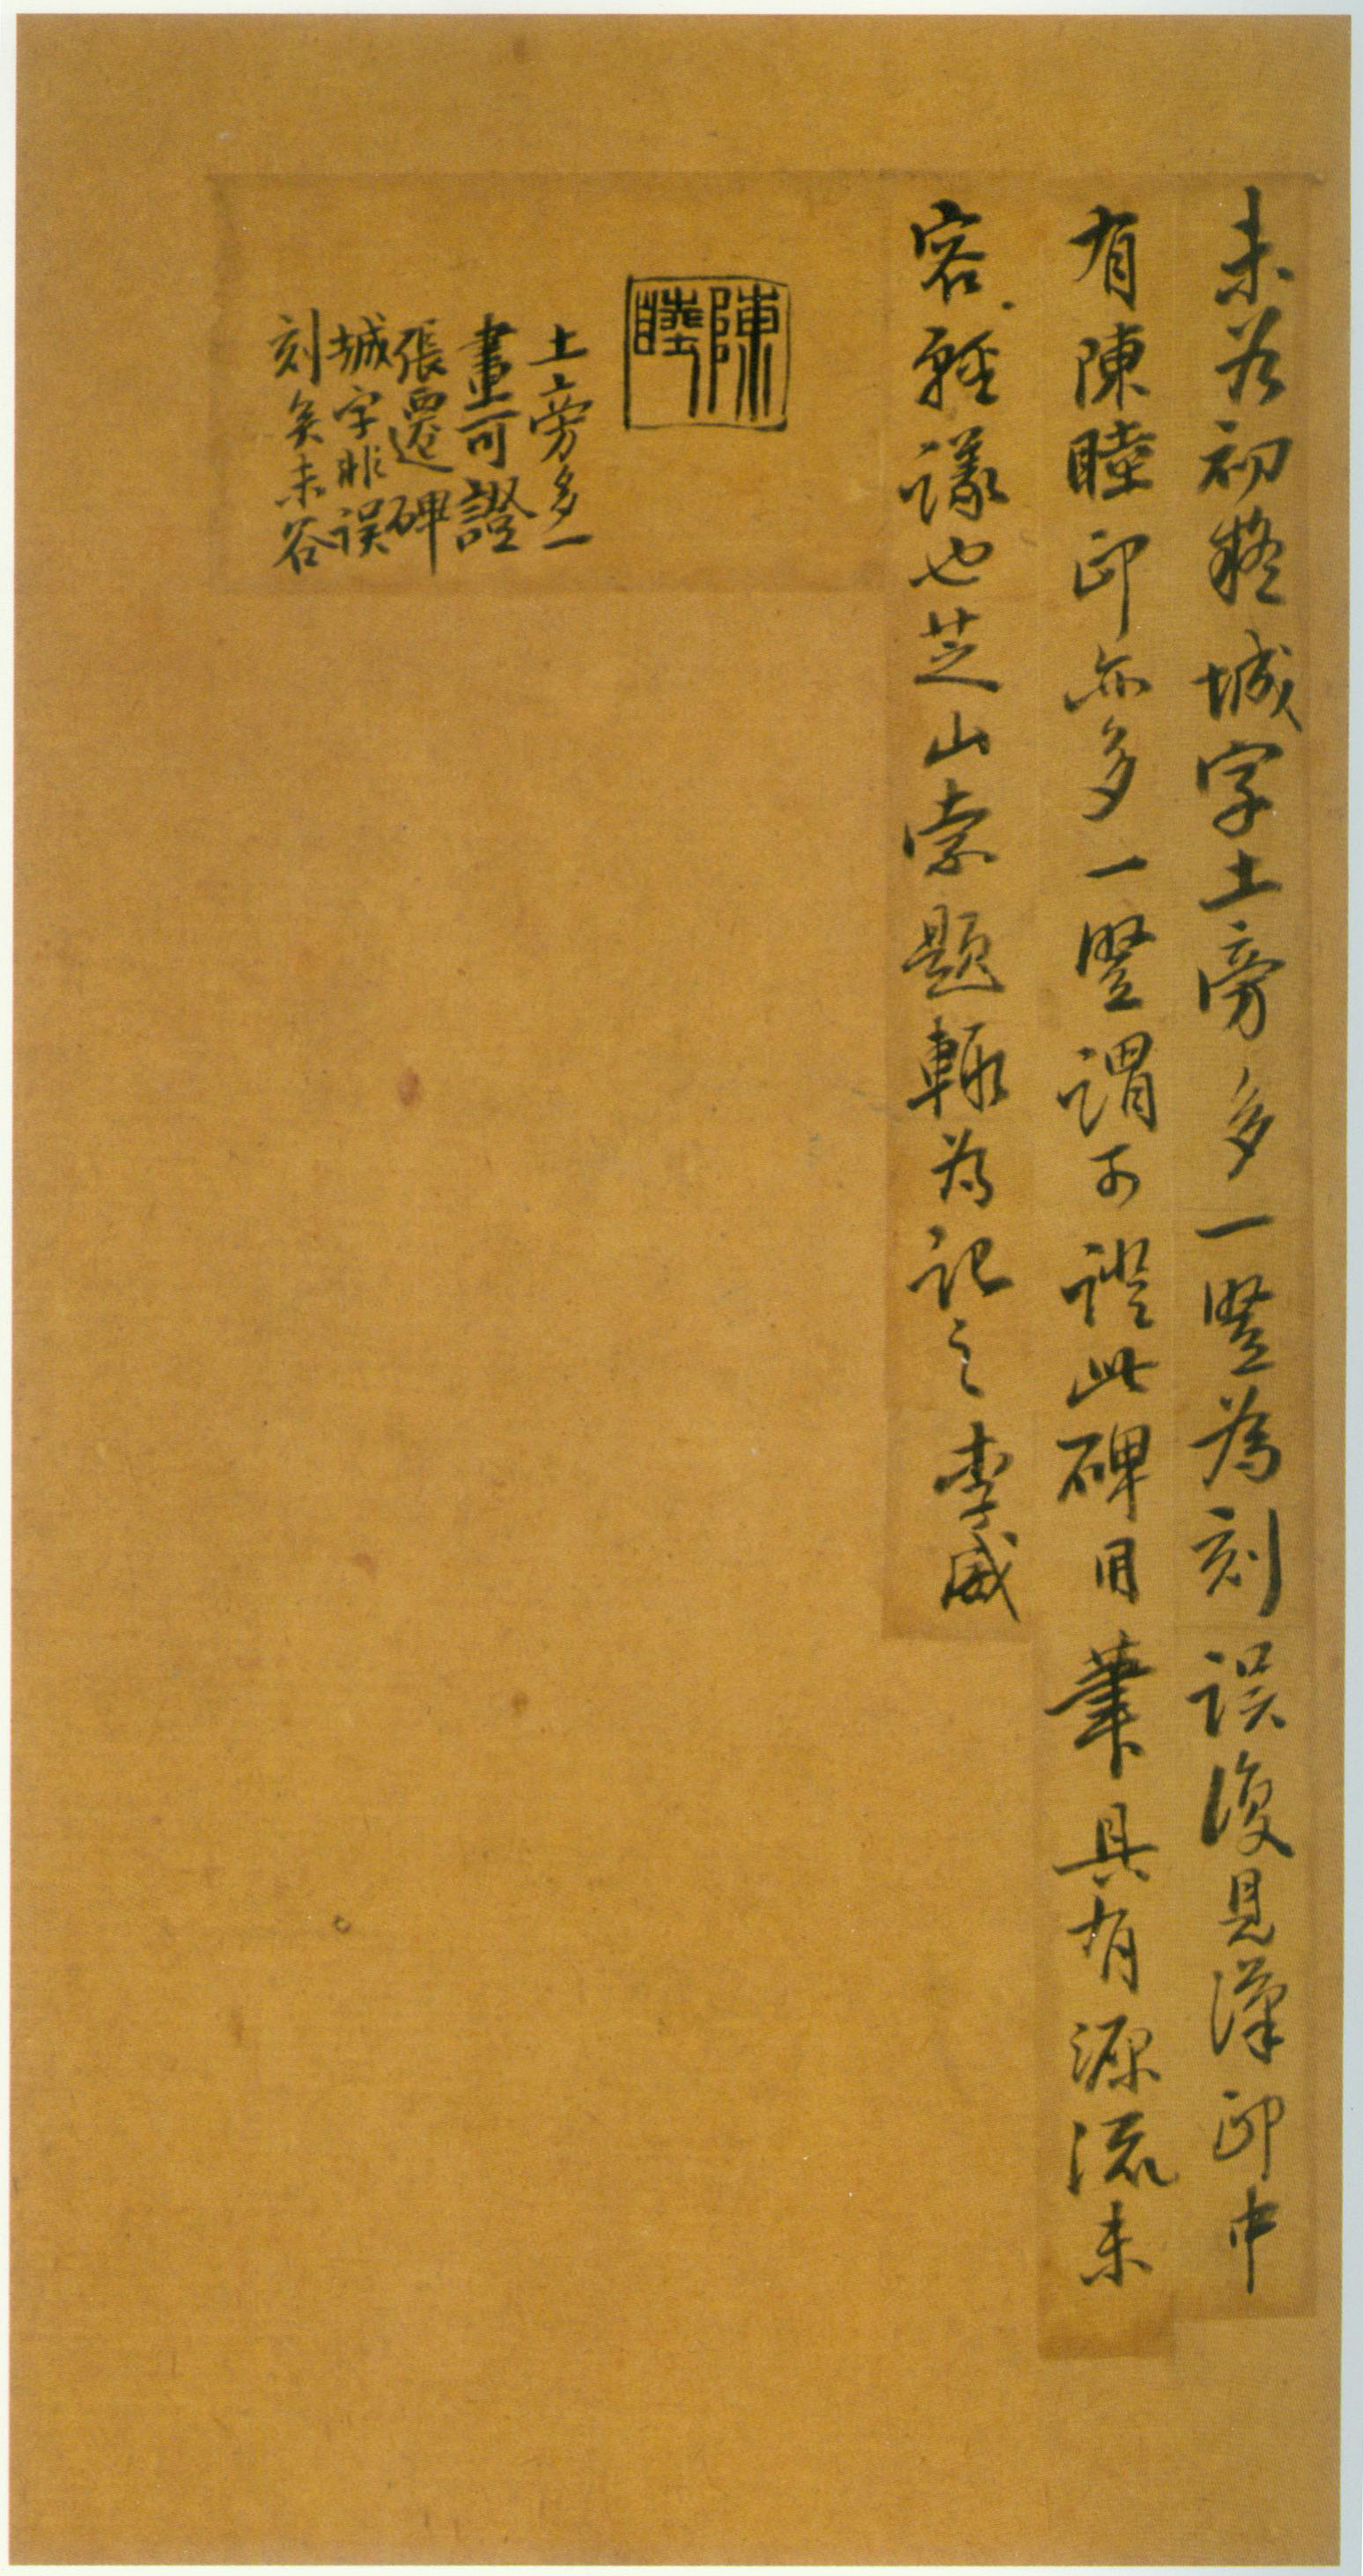 未谷初疑城字土旁多一豎為刻誤復見漢印中
有陳睦印亦多一豎謂可證此碑用筆具有源流未
容輕議也芝山索題輒為記之李威
陳睦
土旁多一
畫可證
張遷碑
城字非誤
刻矣未谷